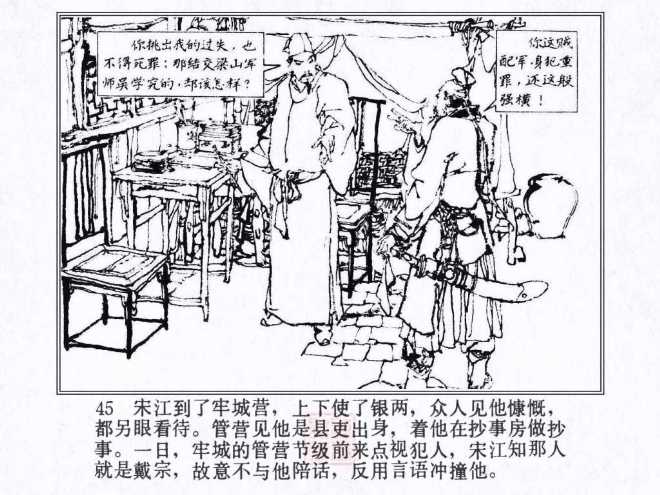 你挑出我的过失，也
不得死罪：那结交梁山军
师吴学究的，却该怎样？
你这贼
配军，身犯重
罪，还这般
强横！
45　宋江到了牢城营，上下使了银两，众人见他慷慨，
都另眼看待。管营见他是县吏出身，着他在抄事房做抄
事。一日，牢城的管营节级前来点视犯人，宋江知那人
就是戴宗，故意不与他陪话，反用言语冲撞他。